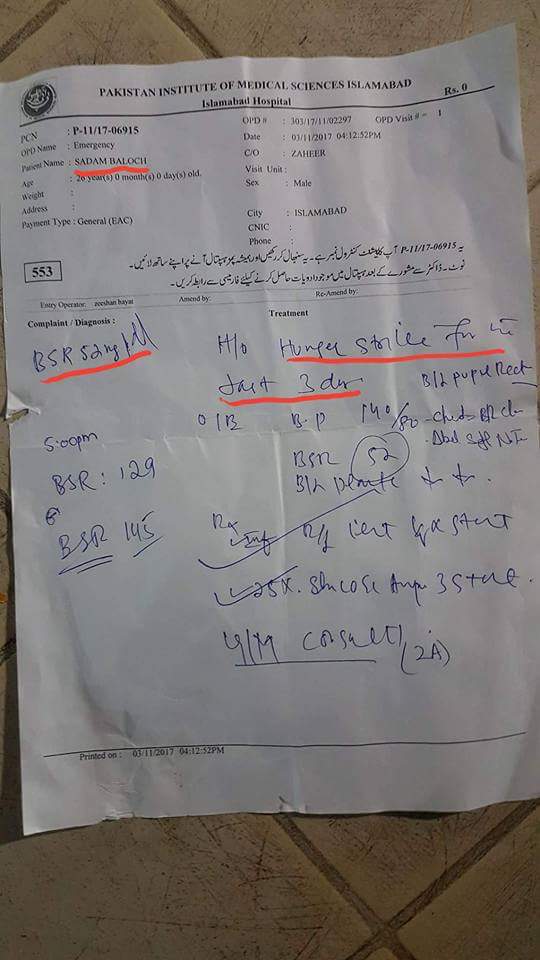 PAKISTAN INSTITUTE OF MEDICAL SCIENCES ISLAMABAD
Rs. 0
Islamabad Hospital
PCN : P-11/17-06915
OPD # : 303/17/11/02297
OPD Visit # = 1
OPD Name : Emergency
Date : 03/11/2017 04:12:52PM
Patient Name : SADAM BALOCH
C/O : ZAHEER
Age : 20 year(s) 0 month(s) 0 day(s) old.
Visit Unit :
Weight :
Sex : Male
Address :
City : ISLAMABAD
Payment Type : General (EAC)
CNIC :
Phone :
یہ P-11/17-06915 آپ کا پیشنٹ کنٹرول نمبر ہے۔ یہ سنبھال کر رکھیں اور ہمیشہ پمز ہسپتال آنے پر اپنے ساتھ لائیں۔
553
نوٹ۔ ڈاکٹر سے مشورے کے بعد ہسپتال میں موجود ادویات حاصل کرنے کیلئے فارمیسی سے رابطہ کریں۔
Entry Operator: zeeshan hayat
Amend by:
Re-Amend by:
Complaint / Diagnosis :
Treatment
BSR 52mg/dl
H/o Hunger strike for
last 3 day
B/L pupil React
O/E B.P 140/80
5:00pm
BSR 52
BSR : 129
B/L
BSR 145
Rx
Inf R/L
25%. Glucose Amp 3 Stat.
consult
Printed on : 03/11/2017 04:12:52PM